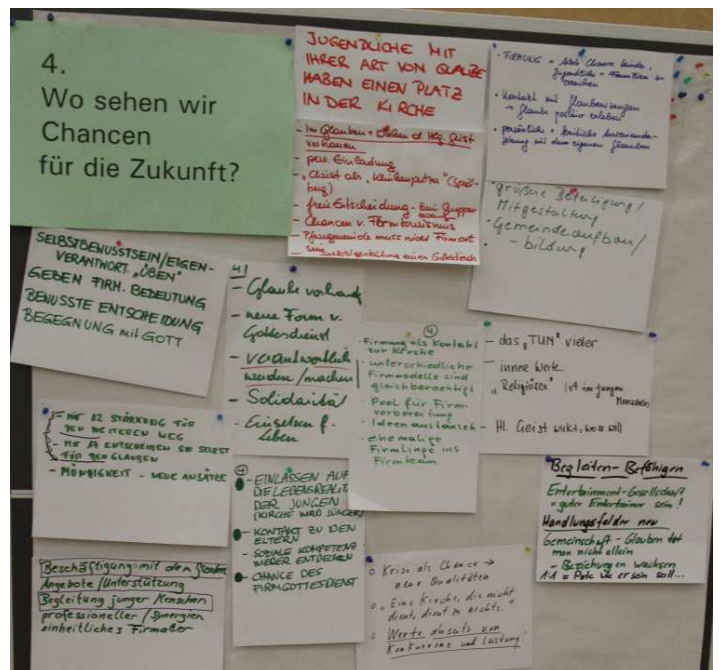 4.
Wo sehen wir
Chancen
für die Zukunft?
JUGENDLICHE MIT
IHRER ART VON GLAUBE
HABEN EINEN PLATZ
IN DER KIRCHE
- Im Glauben + Wirken d. Hlg. Geist
vertrauen
- pers. Einladung
- freie Entscheidung -
- Chancen v. Firmtourismus
- Pfarrgemeinde muss nicht Firmort
sein
• FIRMUNG =
Jugendliche + Familien zu
• Kontakt mit Glaubenszeugen
→ Glaube positiv erleben
• persönliche + kritische Auseinander-
setzung mit dem eigenen Glauben
• größere Beteiligung /
Mitgestaltung
• Gemeindeaufbau /
- bildung
SELBSTBEWUSSTSEIN/EIGEN-
VERANTWORT. „ÜBEN"
GEBEN FIRM. BEDEUTUNG
BEWUSSTE ENTSCHEIDUNG
BEGEGNUNG mit GOTT
4)
- Glaube vorhand
- neue Form v.
Gottesdienst
- verantwortlich
werden/machen
- Solidarität
- Einsetzen f.
Leben
4
- Firmung als Kontakt
zur Kirche
- unterschiedliche
Firmmodelle sind
gleichberechtigt
- Pool für Firm-
vorbereitung
- Ideenaustausch
- ehemalige
Firmlinge ins
Firmteam
- das „TUN" vieler
- innere Werte
- „Religiöses" ist im jungen
Menschen
- Hl. Geist wirkt, wo er will
- MIT 12 STÄRKUNG FÜR
DEN WEITEREN WEG
- MIT 17 ENTSCHEIDEN SIE SELBST
FÜR DEN GLAUBEN
- MÜNDIGKEIT - NEUE ANSÄTZE
4
- EINLASSEN AUF
DIE LEBENSREALITÄT
DER JUNGEN
(KIRCHE WIRD JÜNGER)
- KONTAKT ZU DEN
ELTERN
- SOZIALE KOMPETENZ
WIEDER ENTDECKEN
- CHANCE DES
FIRMGOTTESDIENST
Begleiten - Befähigen
Entertainment-Gesellschaft
- guter Entertainer sein!
Handlungsfelder neu
Gemeinschaft - Glauben tut
man nicht allein
- Beziehungen wachsen
1:1 = Pate wie er sein soll...
Beschäftigung mit dem Glauben
Angebote/Unterstützung
Begleitung junger Menschen
professioneller / Synergien
einheitliches Firmalter
o Krise als Chance →
neue Qualitäten
o „Eine Kirche, die nicht
dient, dient zu nichts."
o Werte abseits von
Konkurrenz und Leistung.